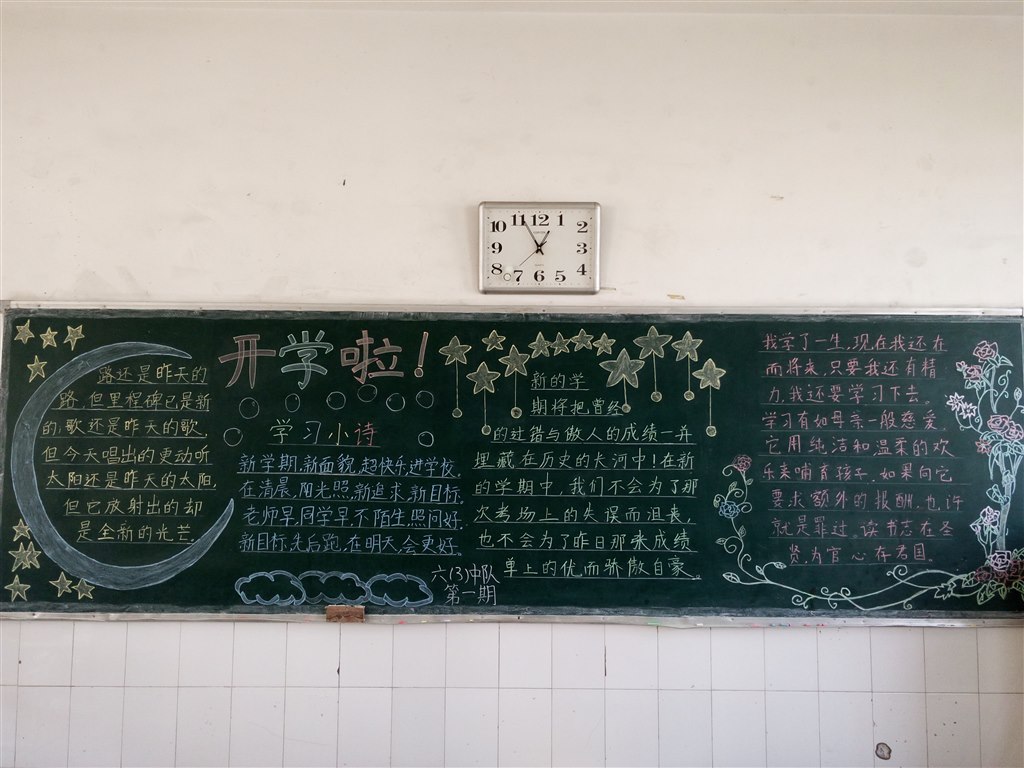 11 12 1
10 2
9 3
8 4
7 6 5
路还是昨天的
路,但里程碑已是新
的,歌还是昨天的歌,
但今天唱出的更动听
太阳还是昨天的太阳,
但它放射出的却
是全新的光芒.
开学啦!
学习小诗
新学期,新面貌,超快乐,进学校.
在清晨,阳光照,新追求,新目标.
老师早,同学早,不陌生,照问好.
新目标,先后跑,在明天,会更好.
六(3)中队
第一期
新的学
期将把曾经
的过错与傲人的成绩一并
埋藏在历史的长河中!在新
的学期中,我们不会为了那
次考场上的失误而沮丧,
也不会为了昨日那来成绩
单上的优而骄傲自豪.
我学了一生,现在我还在
而将来,只要我还有精
力,我还要学习下去。
学习有如母亲一般慈爱
它用纯洁和温柔的欢
乐来哺育孩子,如果向它
要求额外的报酬,也许
就是罪过.读书志在圣
贤,为官心存君国.